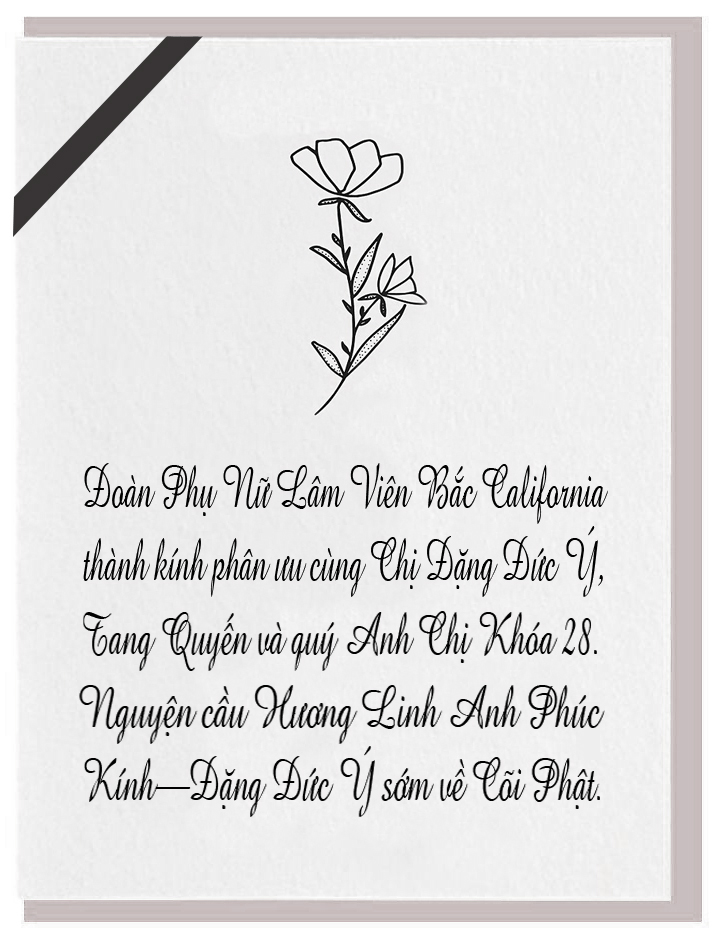 Đoàn Phụ Nữ Lâm Viên Bắc California
thành kính phân ưu cùng Chị Đặng Đức Ý,
Tang Quyến và quý Anh Chị Khóa 28.
Nguyện cầu Hương Linh Anh Phúc
Kính—Đặng Đức Ý sớm về Cõi Phật.